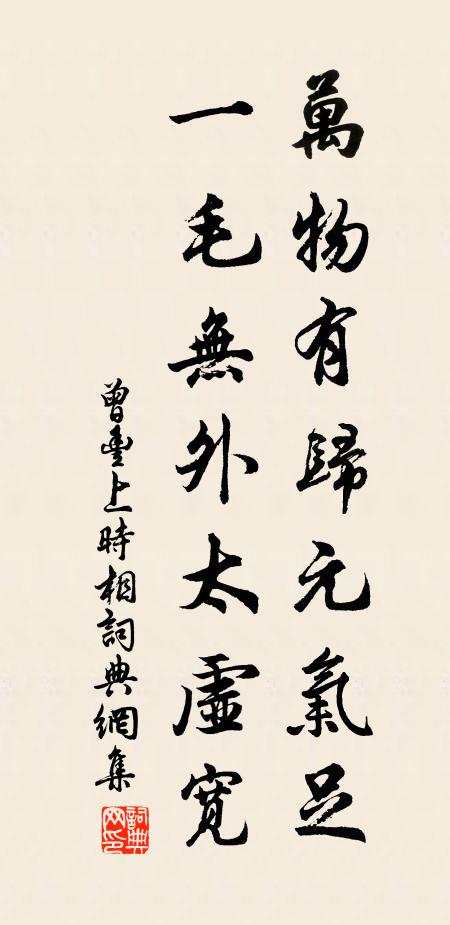 萬物有歸元氣足
一毛無外太虛寬
曾豐上時相詞典網集
詞典网印